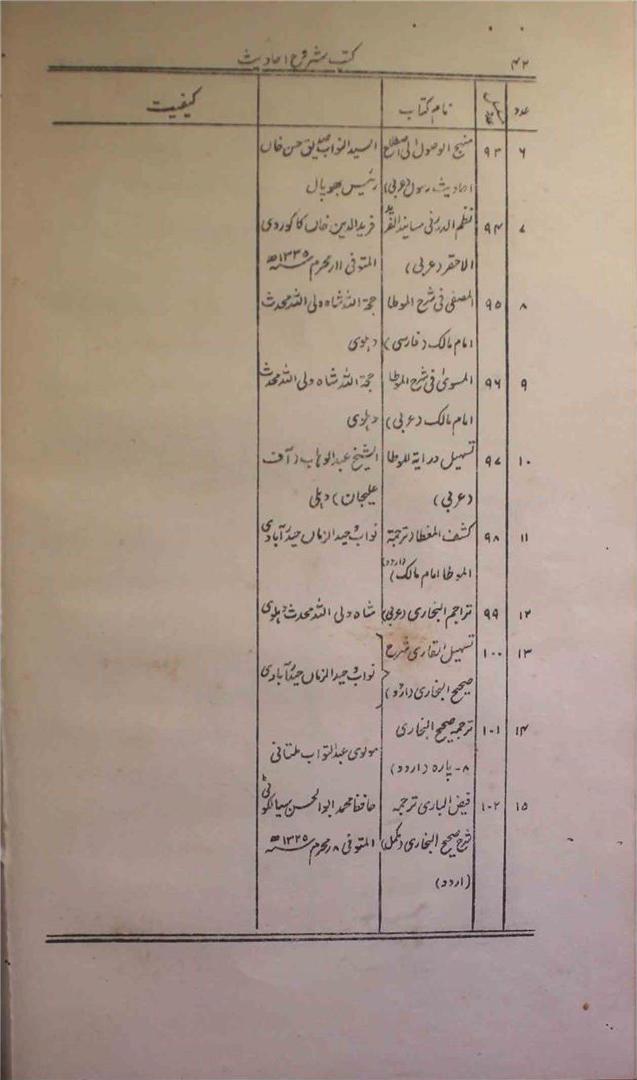 ۴۲ کتب شروح احادیث
عدد نام کتاب کیفیت
۶ ۹۳ منہج الوصول الی اصطلاح السید النواب صدیق حسن خاں
احادیث رسول (عربی) رئیس بھوپال
۷ ۹۴ نظم الدرر فی مسانید الفرید فرید الدین خاں کاکوردی
الاحقر (عربی) المتوفی ۱۱؍ محرم ۱۳۳۵ھ
۸ ۹۵ المصفی فی شرح الموطا حجۃ اللہ شاہ ولی اللہ محدث
امام مالک (فارسی) دہلوی
۹ ۹۶ المسویٰ فی شرح الموطا حجۃ اللہ شاہ ولی اللہ محدث
امام مالک (عربی) دہلوی
۱۰ ۹۷ تسہیل درایۃ الموطا الشیخ عبدالوہاب (آف
(عربی) علیجان) دہلی
۱۱ ۹۸ کشف المغطا (ترجمۃ نواب وحید الزماں حیدرآبادی
الموطا امام مالک) (اردو)
۱۲ ۹۹ تراجم البخاری (عربی) شاہ ولی اللہ محدث دہلوی
۱۳ ۱۰۰ تسہیل القاری شرح
صحیح البخاری (اردو) نواب وحید الزماں حیدرآبادی
۱۴ ۱۰۱ ترجمہ صحیح البخاری
۸ - پارہ (اردو) مولوی عبدالتواب ملتانی
۱۵ ۱۰۲ فیض الباری ترجمہ حافظ محمد ابوالحسن سیالکوٹی
شرح صحیح البخاری (مکمل) المتوفی ۸؍ محرم ۱۳۲۵ھ
(اردو)